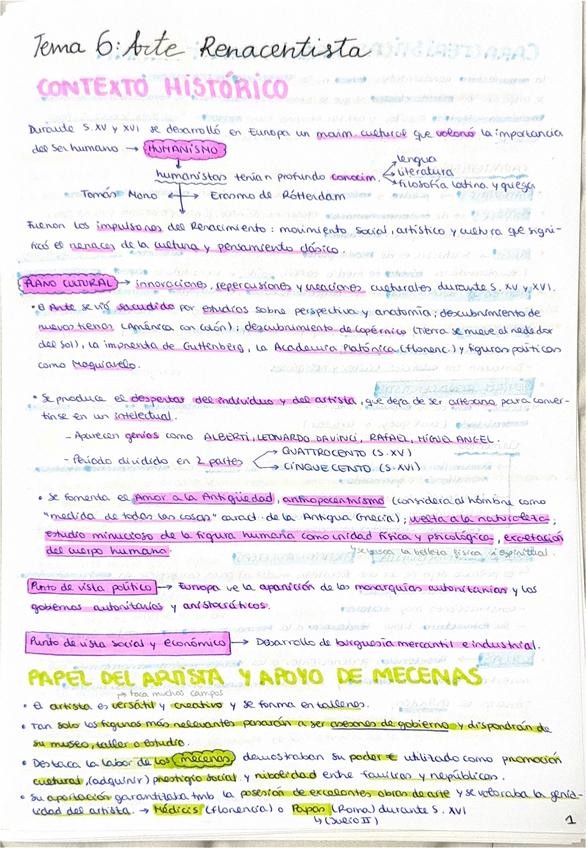 Tema 6: Arte Renacentista
CONTEXTO HISTÓRICO
Durante S. XV y XVI se desarrolló en Europa un movim. cultural que valoró la importancia
del ser humano → HUMANISMO
lengua
humanistas tenían profundo conocim. literatura
filosofía latina y griega
Tomás Moro ← → Erasmo de Rótterdam
Fueron los impulsores del Renacimiento: movimiento social, artístico y cultura que signi-
ficó el renacer de la cultura y pensamiento clásico.
PLANO CULTURAL → innovaciones, repercusiones y creaciones culturales durante S. XV y XVI.
• El Arte se vió sacudido por estudios sobre perspectiva y anatomía; descubrimiento de
nuevas tierras (América con Colón); descubrimiento de Copérnico (Tierra se mueve alrededor
del sol), la imprenta de Guttenberg, la Academia Platónica (Florenc.) y figuras políticas
como Maquiavelo.
• Se produce el despertar del individuo y del artista, que deja de ser artesano, para conver-
tirse en un intelectual.
- Aparecen genios como ALBERTI, LEONARDO DA VINCI, RAFAEL, MIGUEL ANGEL.
- Periodo dividido en 2 partes → QUATTROCENTO (S. XV)
→ CINQUECENTO (S. XVI)
• Se fomenta el Amor a la Antigüedad, antropocentrismo (considera al hombre como
"medida de todas las cosas" caract. de la Antigua Grecia); vuelta a la naturaleza;
estudio minucioso de la figura humana como unidad física y psicológica, exaltación
del cuerpo humano.
se busca la belleza física y espiritual.
Punto de vista político → Europa ve la aparición de las monarquías autoritarias y los
gobiernos autoritarios y aristocráticos.
Punto de vista social y económico → Desarrollo de burguesía mercantil e industrial.
PAPEL DEL ARTISTA Y APOYO DE MECENAS
→ toca muchos campos
• El artista es versátil y creativo y se forma en talleres.
• Tan solo las figuras más relevantes pasarán a ser asesores de gobierno y dispondrán de
su museo, taller o estudio.
• Destaca la labor de los mecenas, demostraban su poder € utilizado como promoción
cultural, (adquirir) prestigio social y nobleza entre familias y repúblicas.
• Su aportación garantizaba tmb la posesión de excelentes obras de arte y se valoraba la genia-
lidad del artista. → Médicis (Florencia) o Papas (Roma) durante S. XVI
↳ (Julio II)
1